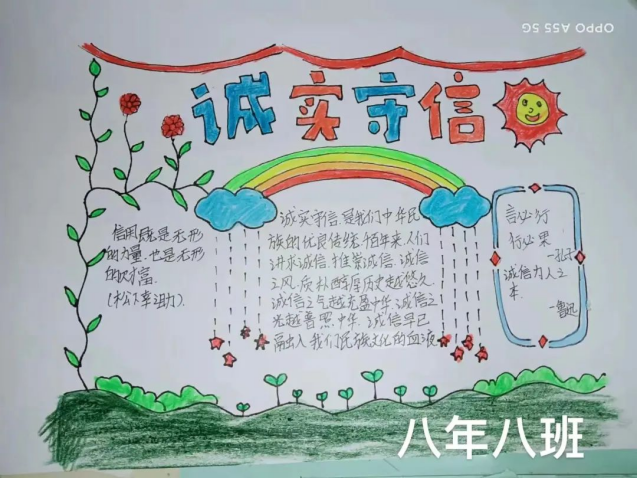 OPPO A55 5G
诚实守信
信用既是无形
的力量,也是无形
的财富。
(松下幸之助)
诚实守信是我们中华民
族的优良传统,千百年来,人们
讲求诚信,推崇诚信。诚信
之风质朴醇厚,历史越悠久,
诚信之气越充盈中华,诚信之
光越普照中华。诚信早已
融入我们民族文化的血液
言必行
行必果
—孔子
诚信为人之
本。
—鲁迅
八年八班